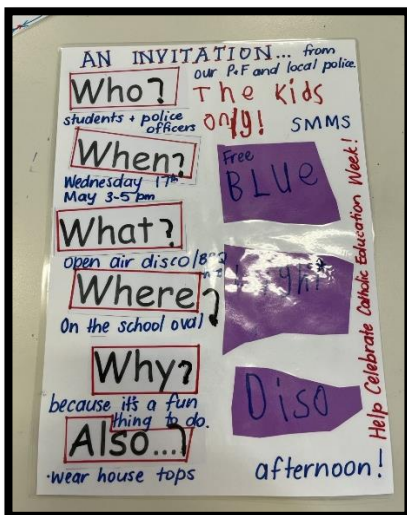 AN INVITATION... from
our P&F and local police.
Who?
The Kids
only!
students + police
officers
SMMS
When?
Wednesday 17th
May 3-5 pm
Free
BLUe
What?
open air disco/BBQ
Where?
light
On the school oval
Why?
because it's a fun
thing to do.
Diso
Also...?
•wear house tops
afternoon!
Help Celebrate Catholic Education Week!